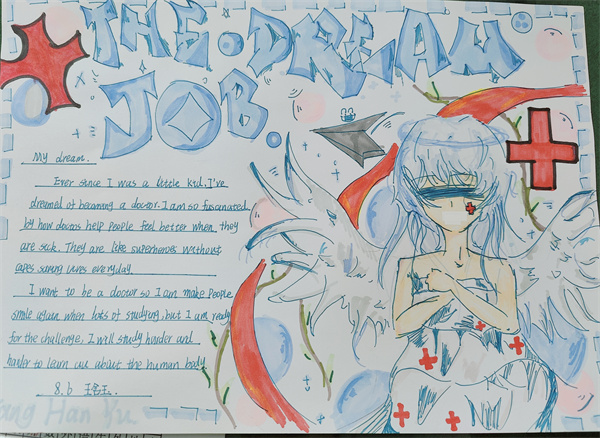 THE DREAM
JOB.
My dream.
Ever since I was a little kid, I've
dreamed of becoming a doctor. I am so fascinated
by how doctos help people feel better when they
are sick. They are like superheroes without
capes saving lives everyday
I want to be a doctor so I am make people
smile again when lots of studying, but I am ready
for the challenge, I will study harder and
harder to learn all about the human body
8.6
Yang Han Yu